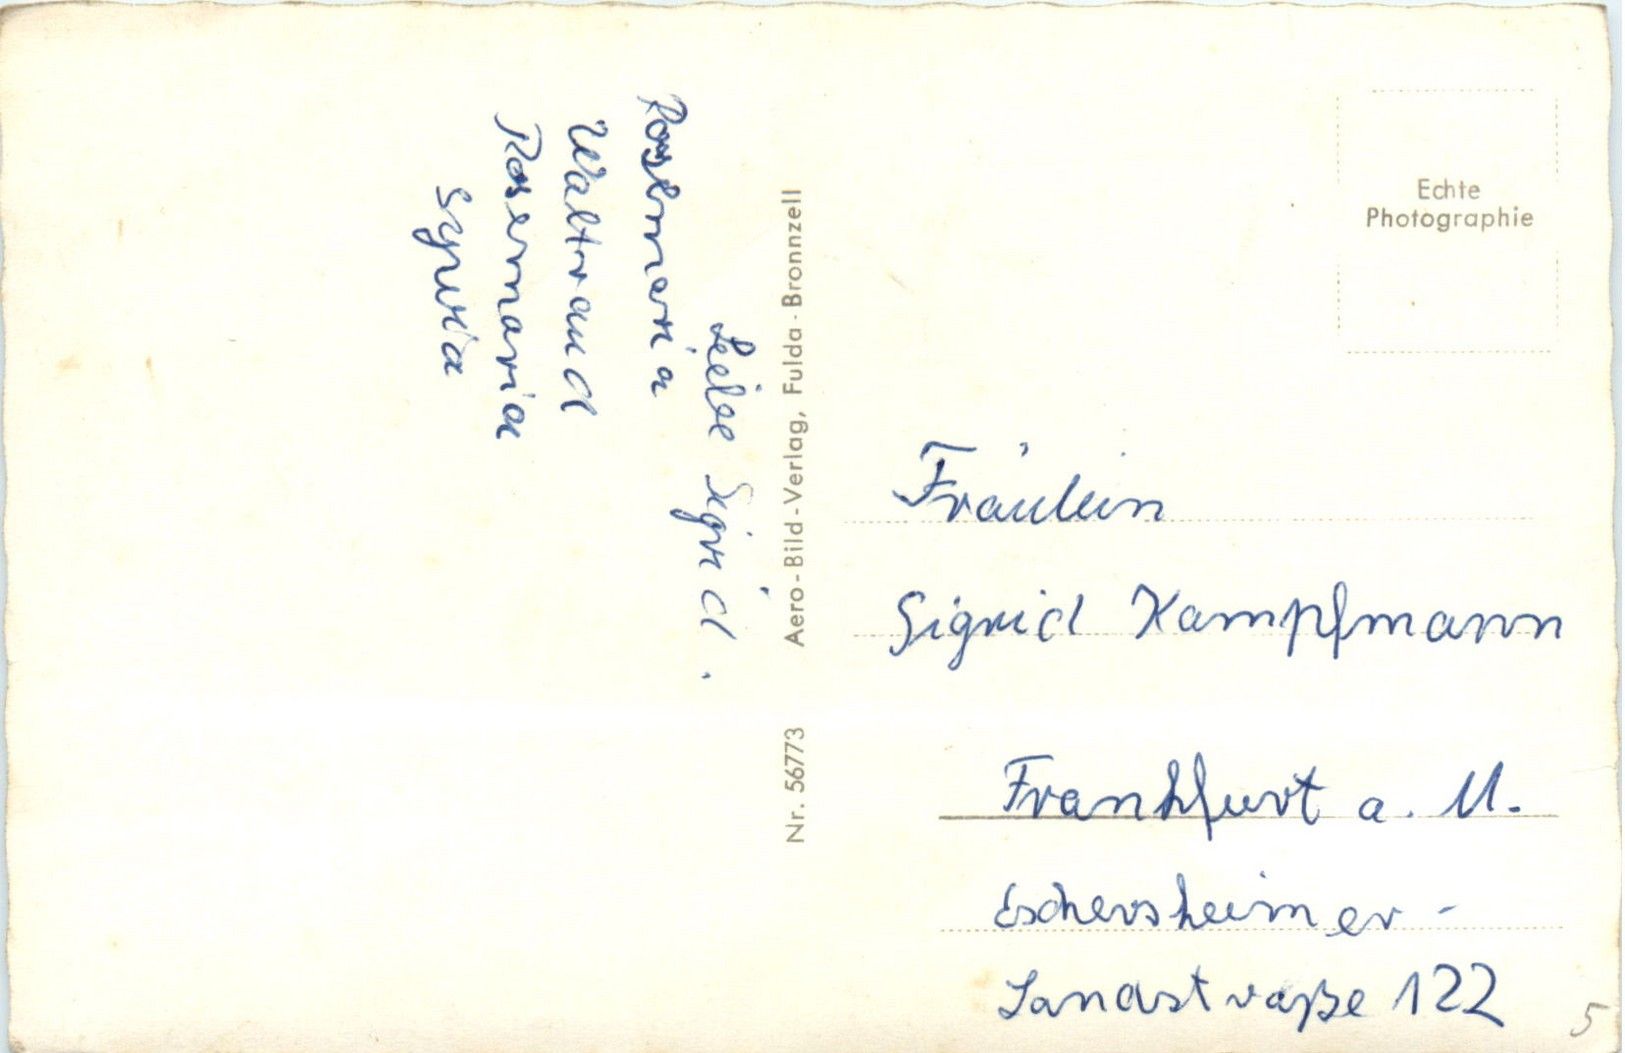 Liebe Sigrid.
Rosemaria
Waltraud
Rosemaria
Sylvia
Nr. 56773 Aero-Bild-Verlag, Fulda-Bronnzell
Echte
Photographie
Fräulein
Sigrid Kampfmann
Frankfurt a. M.
Eschersheimer-
Landstraße 122
5